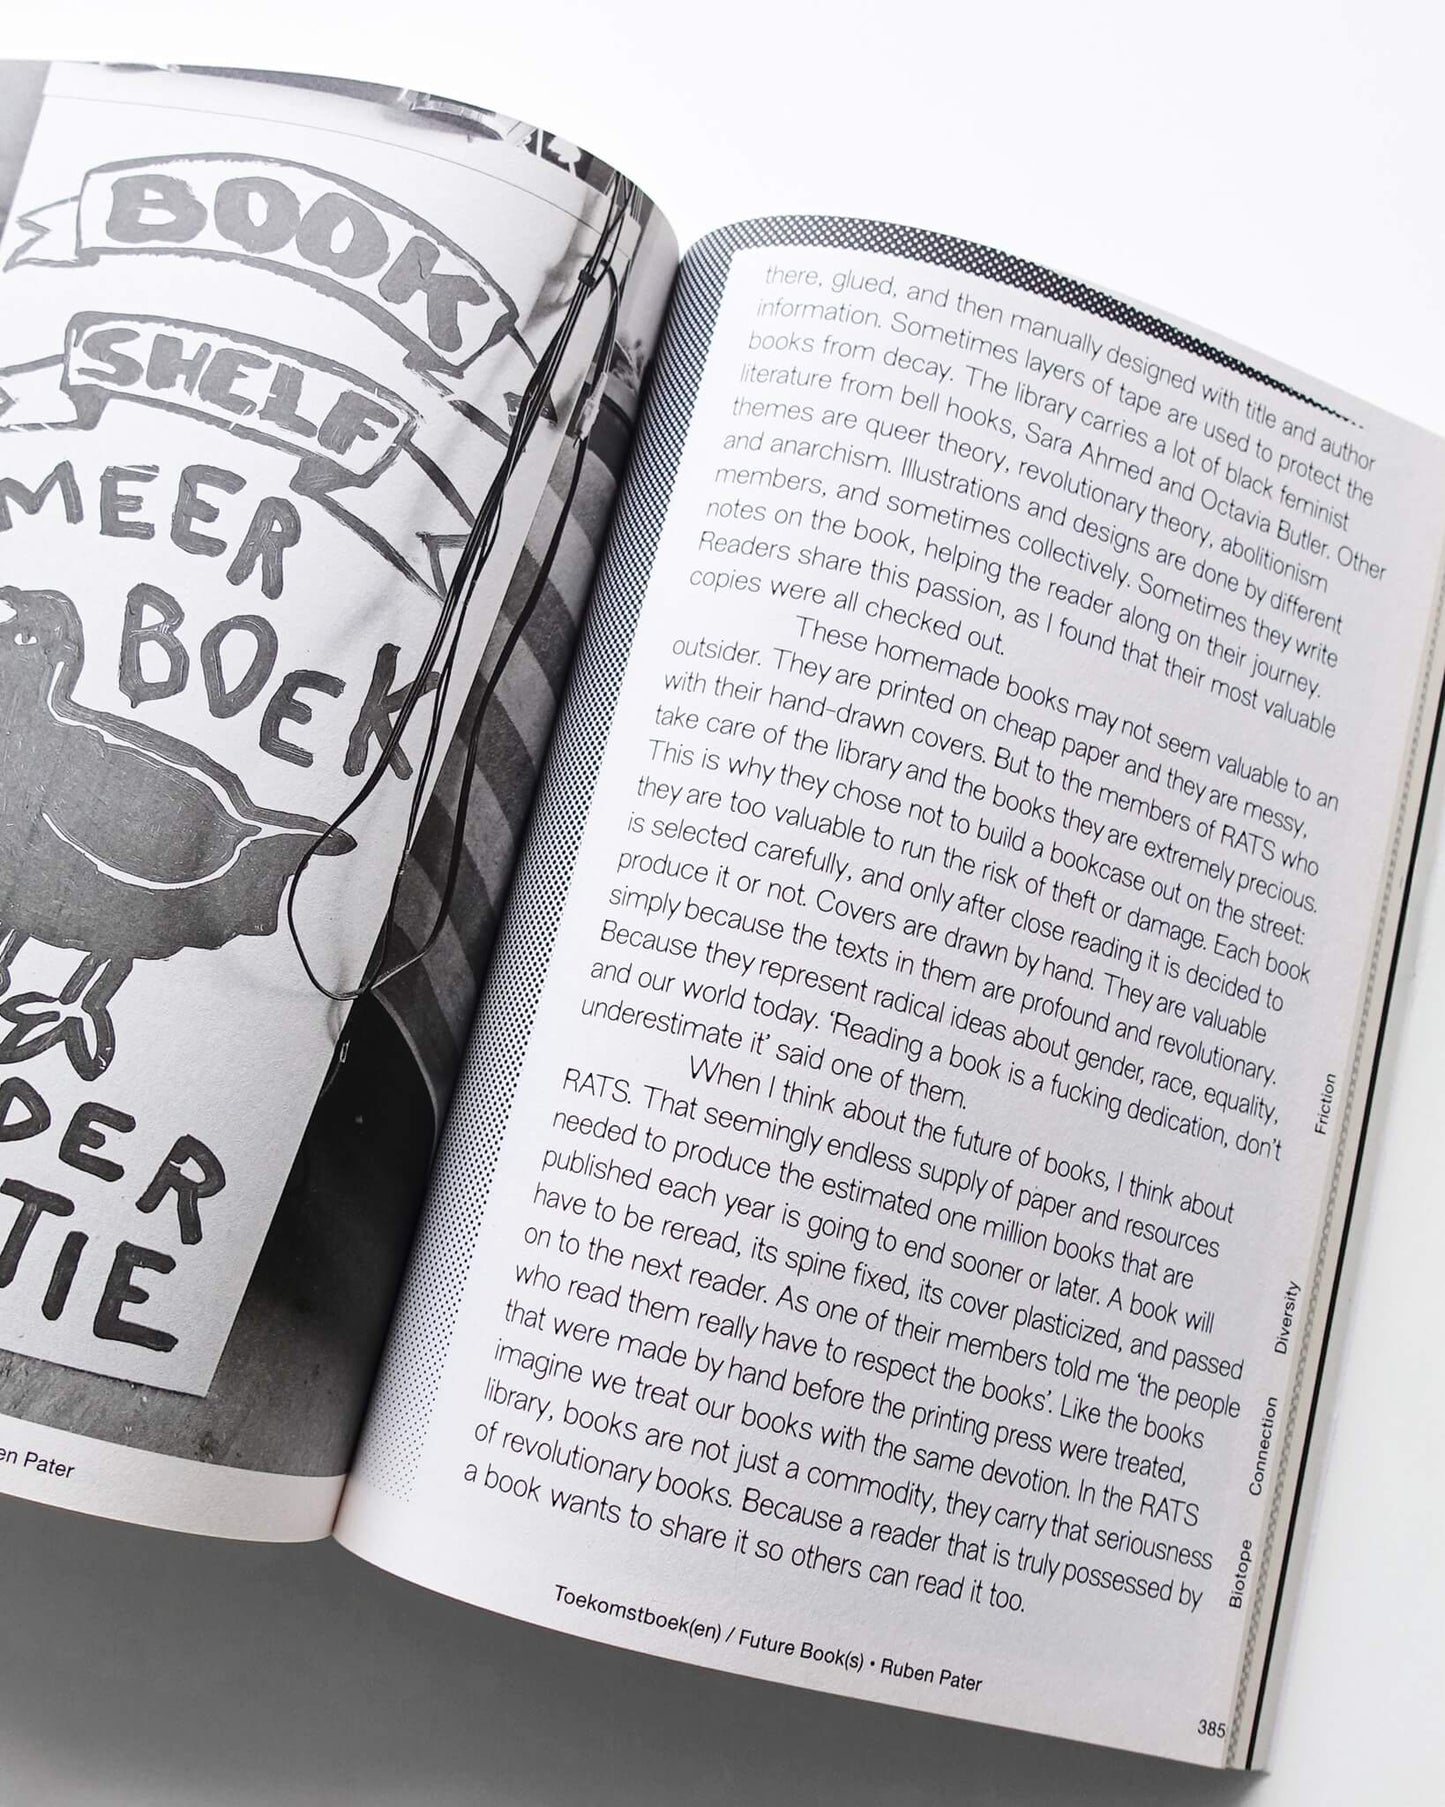 BOOK
SHELF
MEER
BOEK
DER
TIE
en Pater
there, glued, and then manually designed with title and author
information. Sometimes layers of tape are used to protect the
books from decay. The library carries a lot of black feminist
literature from bell hooks, Sara Ahmed and Octavia Butler. Other
themes are queer theory, revolutionary theory, abolitionism
and anarchism. Illustrations and designs are done by different
members, and sometimes collectively. Sometimes they write
notes on the book, helping the reader along on their journey.
Readers share this passion, as I found that their most valuable
copies were all checked out.
These homemade books may not seem valuable to an
outsider. They are printed on cheap paper and they are messy,
with their hand-drawn covers. But to the members of RATS who
take care of the library and the books they are extremely precious.
This is why they chose not to build a bookcase out on the street:
they are too valuable to run the risk of theft or damage. Each book
is selected carefully, and only after close reading it is decided to
produce it or not. Covers are drawn by hand. They are valuable
simply because the texts in them are profound and revolutionary.
Because they represent radical ideas about gender, race, equality,
and our world today. ‘Reading a book is a fucking dedication, don’t
underestimate it’ said one of them.
When I think about the future of books, I think about
RATS. That seemingly endless supply of paper and resources
needed to produce the estimated one million books that are
published each year is going to end sooner or later. A book will
have to be reread, its spine fixed, its cover plasticized, and passed
on to the next reader. As one of their members told me ‘the people
who read them really have to respect the books’. Like the books
that were made by hand before the printing press were treated,
imagine we treat our books with the same devotion. In the RATS
library, books are not just a commodity, they carry that seriousness
of revolutionary books. Because a reader that is truly possessed by
a book wants to share it so others can read it too.
Toekomstboek(en) / Future Book(s) • Ruben Pater
385
Friction
Diversity
Connection
Biotope